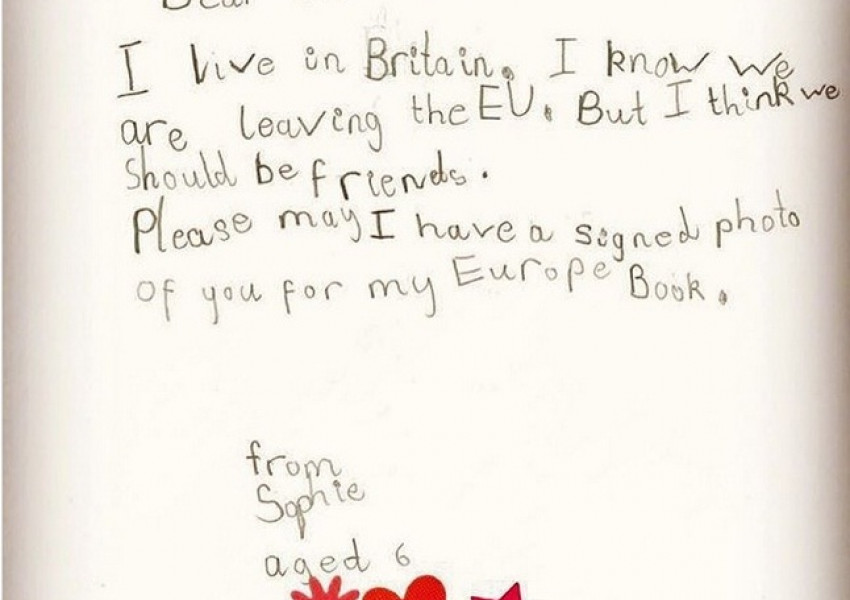 Dear
I live in Britain. I know we
are leaving the EU. But I think we
should be friends.
Please may I have a signed photo
of you for my Europe Book.
from
Sophie
aged 6